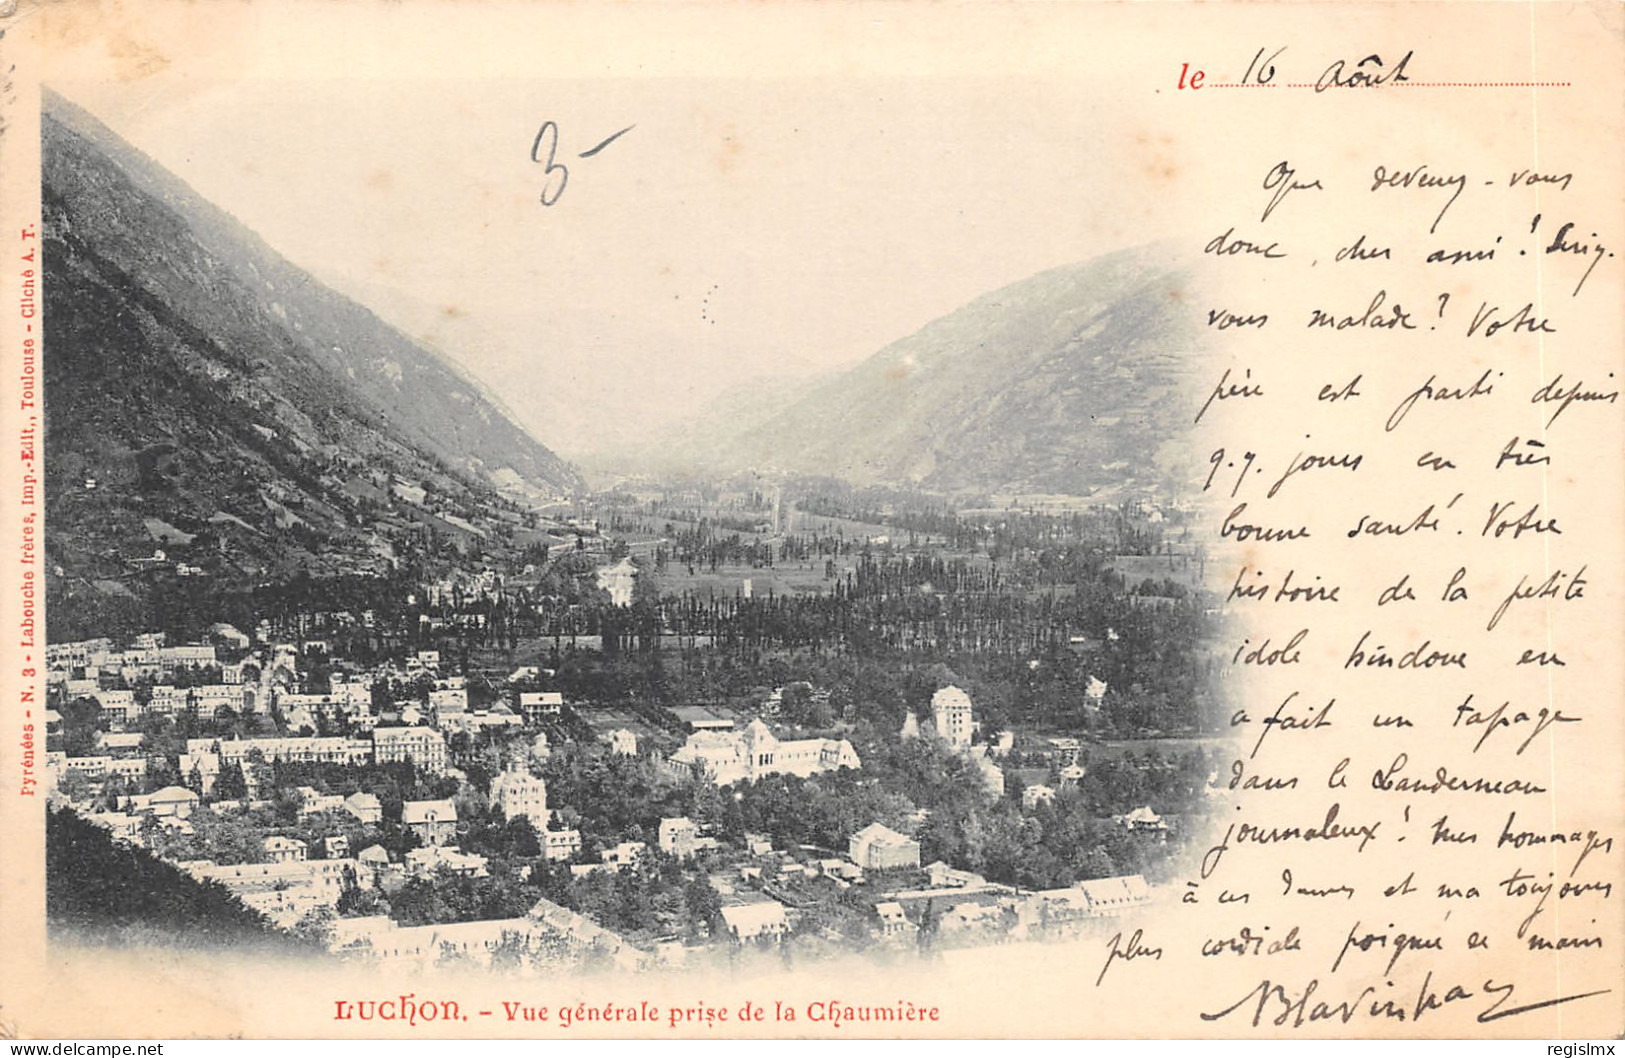 le 16 Août
3-
Que devenez-vous
donc, cher ami! Seriez-
vous malade? Votre
père est parti depuis
q.q. jours en très
bonne santé. Votre
histoire de la petite
idole hindoue en
a fait un tapage
dans le Landerneau
journaleux! Mes hommages
à ces Dames et ma toujours
plus cordiale poignée de main
Pyrénées - N. 3 - Labouche frères, Imp.-Edit., Toulouse - Cliché A. T.
LUCHON. - Vue générale prise de la Chaumière
delcampe.net
regislmx